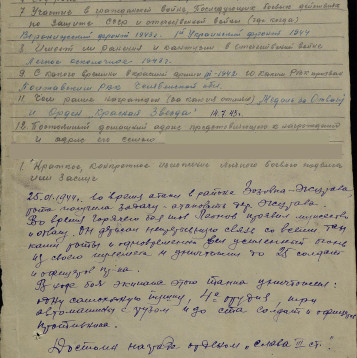 7. Участие в гражданской войне, последующих боевых действиях
по защите СССР и отечественной войне (где, когда)
Воронежский фронт 1943г. 1й Украинский фронт 1944
8. Имеет ли ранения и контузии в отечественной войне
Легкое 1943г.
9. С какого времени в красной армии с -1942 10. каким РВК призван
РВК обл.
11. Чем ранее награжден (за какие отличия) Медаль "За Отвагу"
и Орден Красная Звезда" 14.7.43г.
12. Постоянный домашний адрес представленного к награждению
и адрес его семьи
1. "Краткое, конкретное изложение личного боевого подвига
или заслуг
25.01.1944г. во время атаки в районе
рота получила задачу -
Во время горячего боя тов. проявил мужество
и отвагу. Он держал непрерывную связь со всеми тан
ками роты и одновременно вел огонь
из своего пулемета и уничтожил до 25 солдат
и офицеров пр-ка.
В ходе боя экипаж этой танка уничтожил:
одну самоходную пушку, 4 орудия, три
автомашины с грузом и до ста солдат и офицеров
противника.
Достоин награды орденом "Слава III ст."